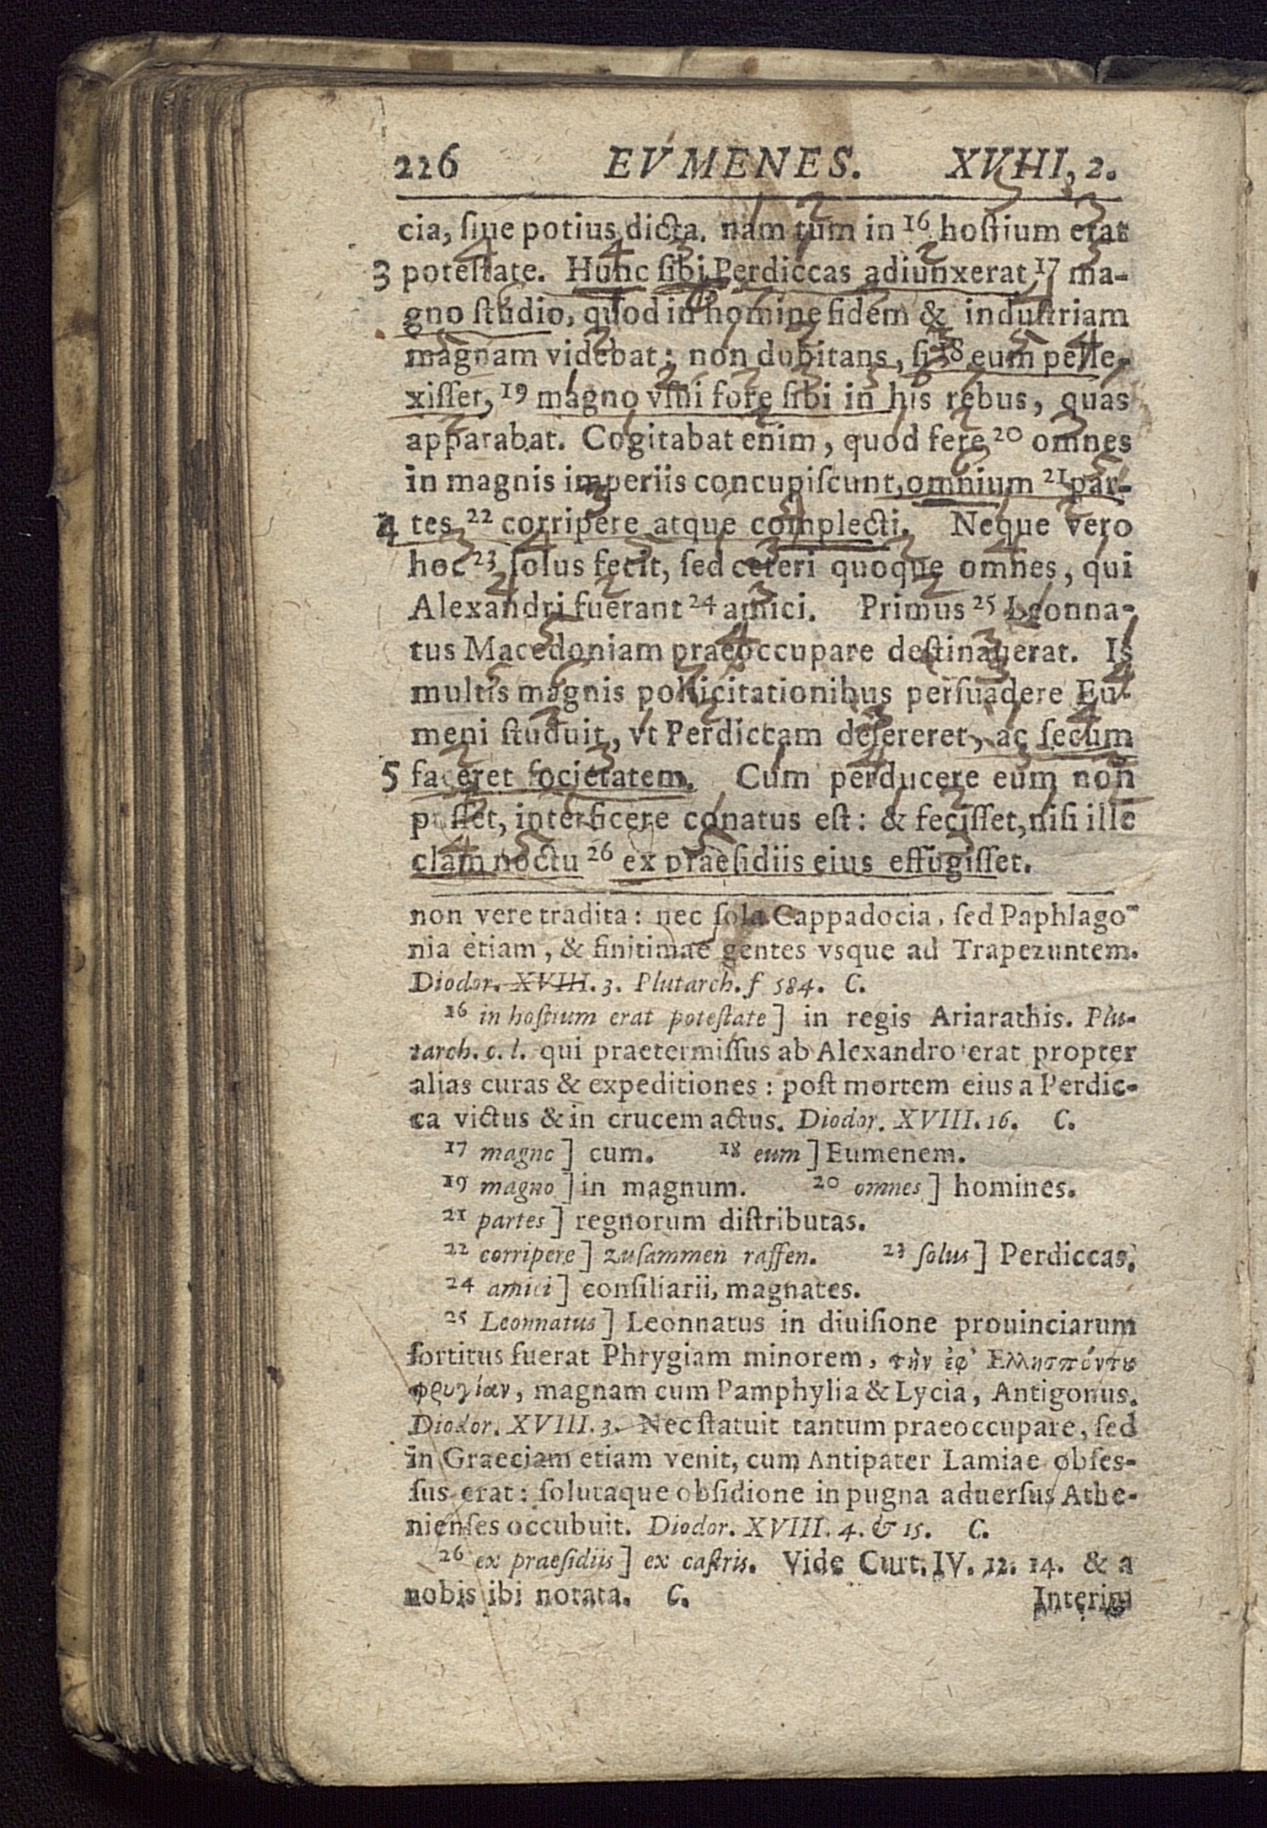 226 EVMENES. XVIII, 2.
cia, ſiue potius dicta. nam tum in 16 hoſtium erat
3 poteſtate. Hunc ſibi Perdiccas adiunxerat 17 ma-
gno ſtudio, quod in homine fidem & induſtriam
magnam videbat; non dubitans, ſi 18 eum pelle-
xiſſet, 19 magno vſui fore ſibi in his rebus, quas
apparabat. Cogitabat enim, quod fere 20 omnes
in magnis imperiis concupiſcunt, omnium 21 par-
4 tes 22 corripere atque complecti. Neque vero
hoc 23 ſolus fecit, ſed ceteri quoque omnes, qui
Alexandri fuerant 24 amici. Primus 25 Leonna-
tus Macedoniam praeoccupare deſtinauerat. Is
multis magnis pollicitationibus perſuadere Eu-
meni ſtuduit, vt Perdiccam deſereret, ac ſecum
5 faceret ſocietatem. Cum perducere eum non
poſſet, interficere conatus eſt: & feciſſet, niſi ille
clam noctu 26 ex praeſidiis eius effugiſſet.
non vere tradita: nec ſola Cappadocia, ſed Paphlago-
nia etiam, & finitimae gentes vsque ad Trapezuntem.
Diodor. XVIII. 3. Plutarch. f 584. C.
16 in hoſtium erat poteſtate] in regis Ariarathis. Plu-
tarch. c. l. qui praetermiſſus ab Alexandro erat propter
alias curas & expeditiones: poſt mortem eius a Perdic-
ca victus & in crucem actus. Diodor. XVIII. 16. C.
17 magno] cum. 18 eum] Eumenem.
19 magno] in magnum. 20 omnes] homines.
21 partes] regnorum diſtributas.
22 corripere] zuſammen raffen. 23 ſolus] Perdiccas.
24 amici] conſiliarii, magnates.
25 Leonnatus] Leonnatus in diuiſione prouinciarum
ſortitus fuerat Phrygiam minorem, τὴν ἐφ' Ἑλλησπόντῳ
φρυγίαν, magnam cum Pamphylia & Lycia, Antigonus.
Diodor. XVIII. 3. Nec ſtatuit tantum praeoccupare, ſed
in Graeciam etiam venit, cum Antipater Lamiae obſes-
ſus erat: ſolutaque obſidione in pugna aduerſus Athe-
nienſes occubuit. Diodor. XVIII. 4. & 15. C.
26 ex praeſidiis] ex caſtris. Vide Curt. IV. 12. 14. & a
nobis ibi notata. C. Interim